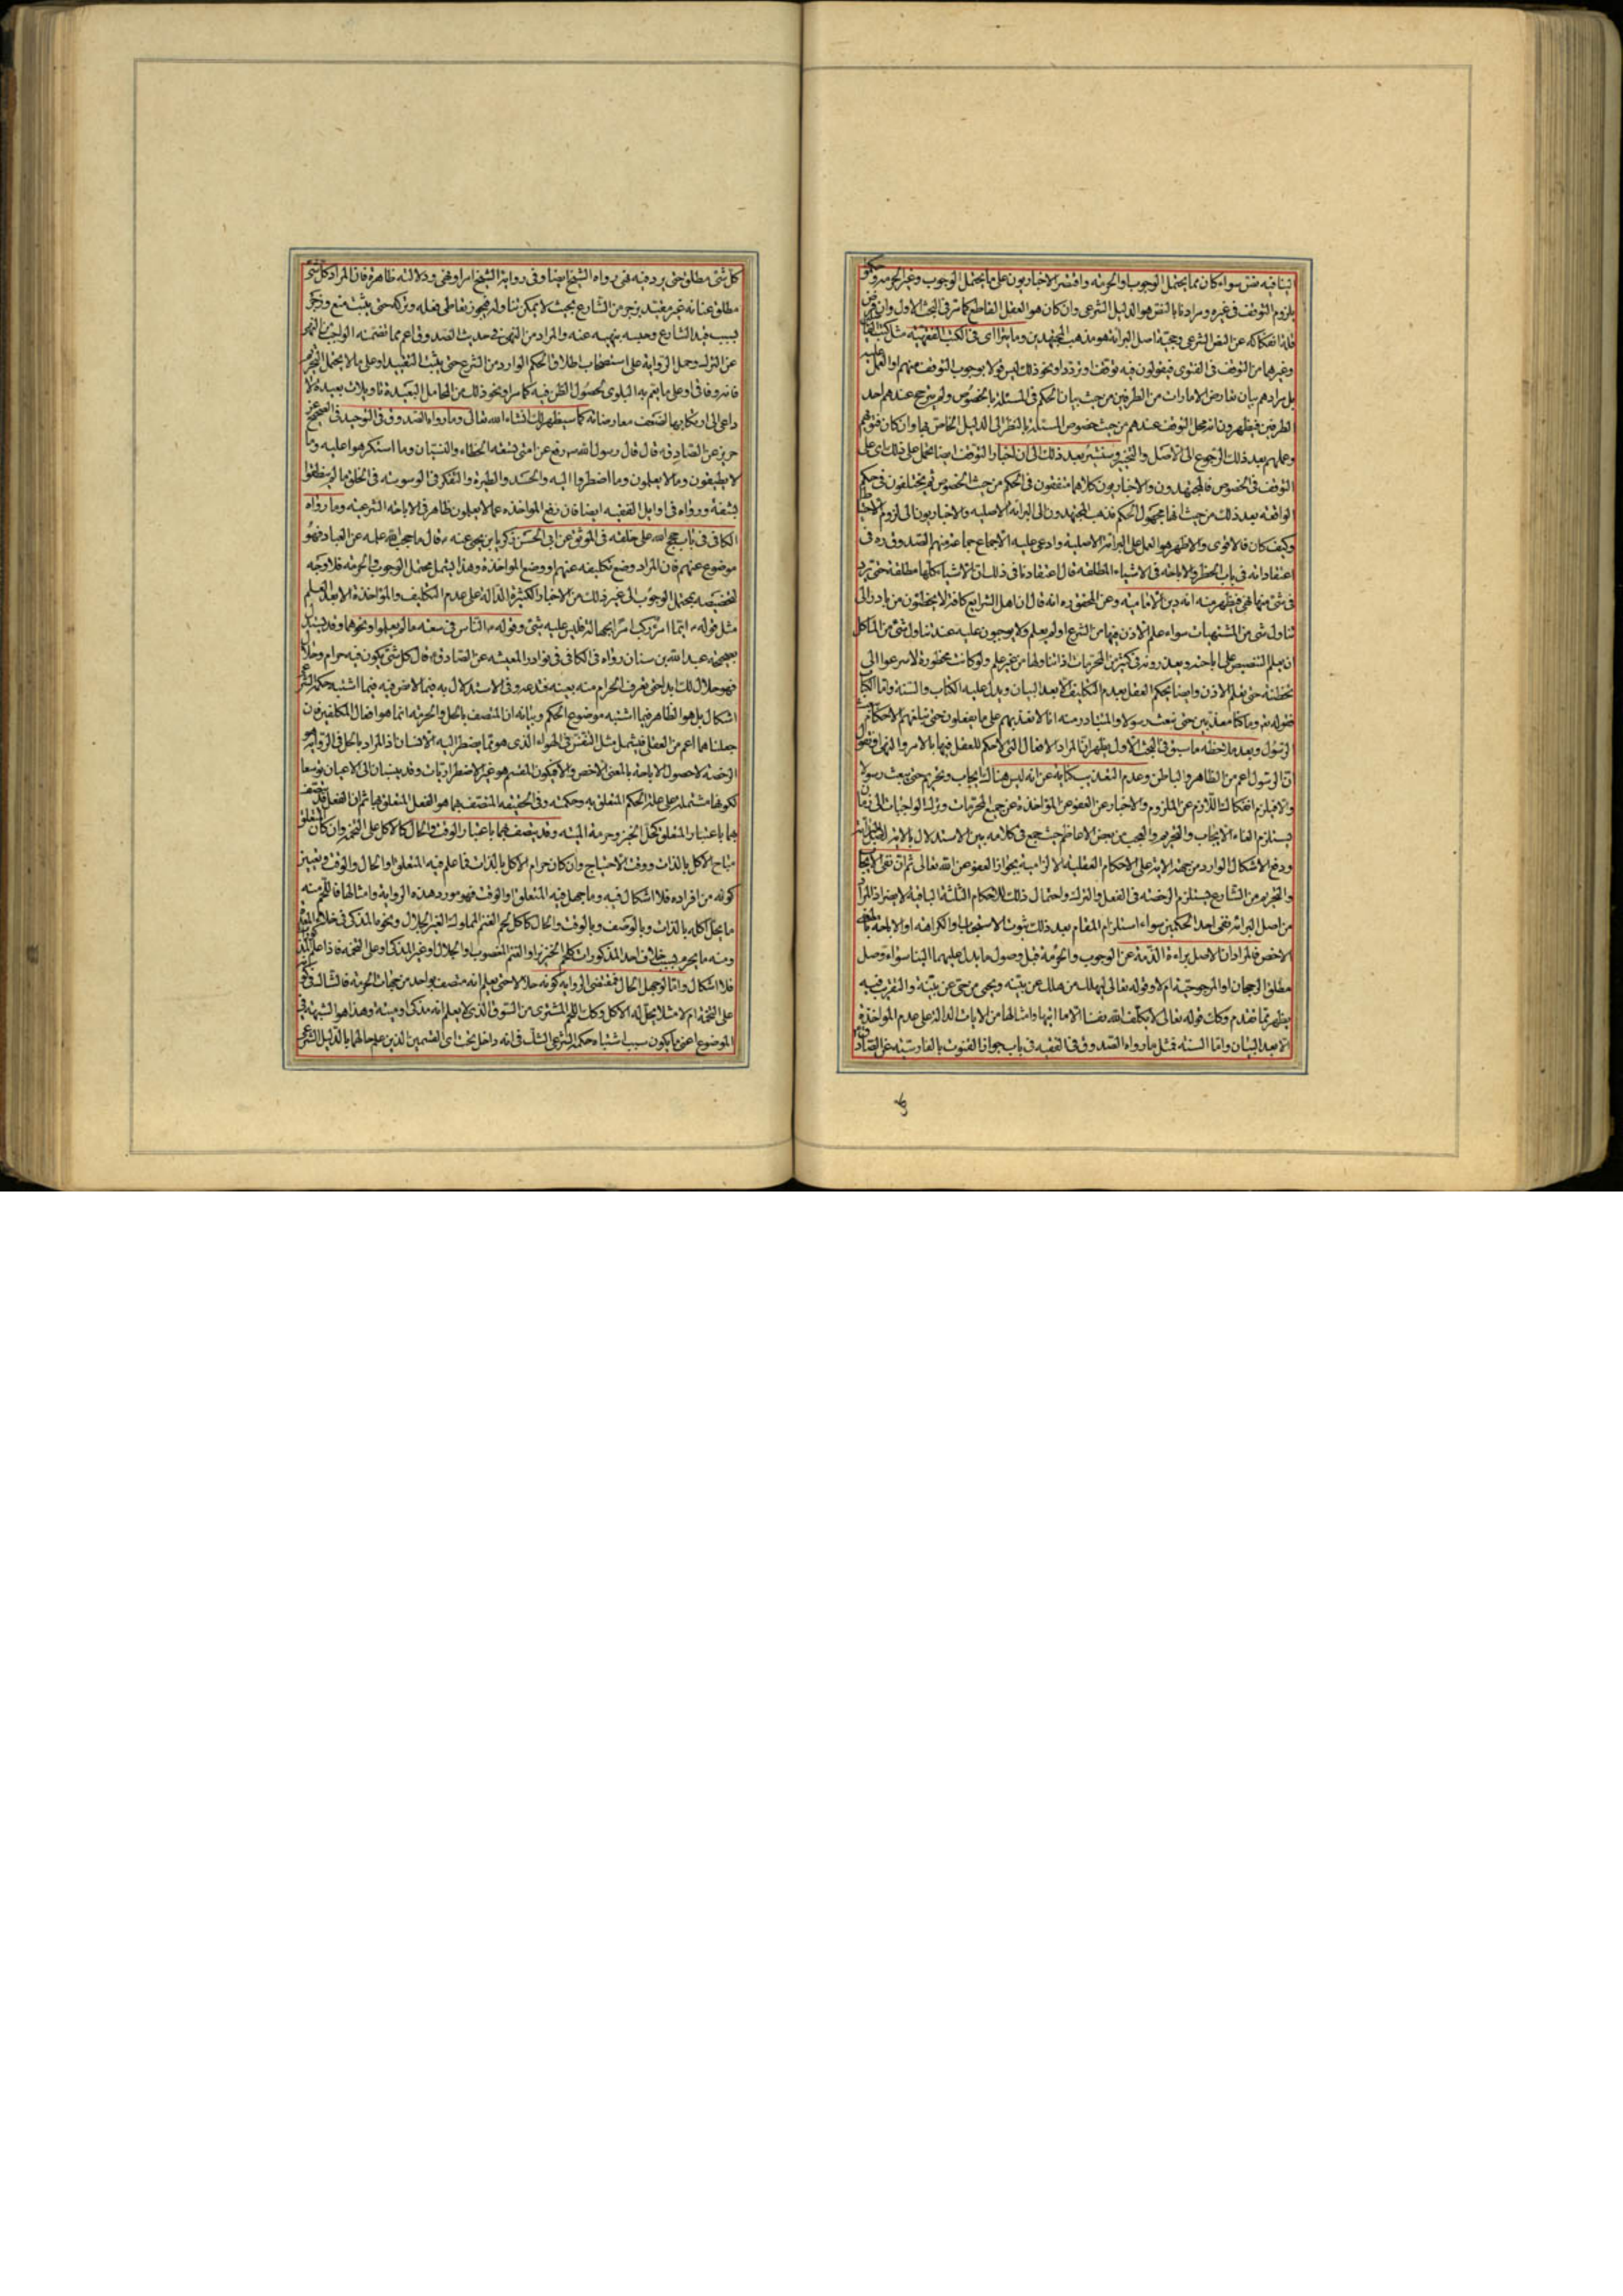 الينا فيه نص سواء كان مما يحتمل الوجوب او الحرمة واقتصر الاخباريون على ما يحتمل الوجوب وغير الحرمة وحكموا
بلزوم التوقف في غيره ومرادنا بالنص هو الدليل الشرعي وان كان هو العقل القاطع كما مر في البحث الاول وان فرض
قلة انفكاكه عن النص الشرعي وحجية اصل البراءة هو مذهب المجتهدين وما يتراءى في الكتب الفقهية مثل كتب
وغيرهما من التوقف في الفتوى فيقولون فيه توقف او تردد او نحو ذلك ليس قولا بوجوب التوقف منهم او العمل عليه
بل مرادهم بيان تعارض الامارات من الطرفين من حيث بيان الحكم في المسئلة بالخصوص ولم يترجح عندهم احد
الطرفين فيظهرون انه محل التوقف عندهم من حيث خصوص المسئلة بالنظر الى الدليل الخاص بها وان كان فتواهم
وعملهم بعد ذلك الرجوع الى الاصل والتخيير وسنشير بعد ذلك الى ان اخبار التوقف ايضا تحمل على ذلك اي على
التوقف في الخصوص فالمجتهدون والاخباريون كلاهما متفقون في الحكم من حيث الخصوص ثم يختلفون في حكم
الواقعة بعد ذلك من حيث انها مجهول الحكم فذهب المجتهدون الى البراءة الاصلية والاخباريون الى لزوم الاحتياط
وكيف كان فالاقوى والاظهر هو العمل على البراءة الاصلية وادعى عليه الاجماع جماعة منهم الصدوق ره في
اعتقاداته في باب الحظر والاباحة في الاشياء المطلقة قال اعتقادنا في ذلك ان الاشياء كلها مطلقة حتى يرد
في شئ منها نهي فيظهر منه انه دين الامامية وعن المحقق ره انه قال ان اهل الشرايع كافة لا يخطئون من بادر الى
تناول شئ من المشتبهات سواء علم الاذن فيها من الشرع او لم يعلم ولا يوجبون عليه عند تناول شئ من الماكل
ان يعلم التنصيص على اباحته ويعذرونه في كثير من المحرمات اذا تناولها من غير علم ولو كانت محظورة لاسرعوا الى
تخطئته حتى يعلم الاذن وايضا يحكم العقل بعدم التكليف الا بعد البيان ويدل عليه الكتاب والسنة واما الكتاب
فقوله تع وما كنا معذبين حتى نبعث رسولا والمتبادر منه انا لا نعذبهم على ما يفعلون حتى نبلغهم الاحكام
الرسول وبعد ملاحظة ما سبق في البحث الاول يظهر ان المراد الافعال التي لا حكم للعقل فيها بالامر والنهي او نقول
ان الرسول اعم من الظاهر والباطن وعدم التعذيب كناية عن انه ليس هناك ايجاب وتحريم حتى يبعث رسولا
والا فيلزم انفكاك اللازم عن الملزوم والاخبار عن العفو عن المؤاخذة عن جميع المحرمات وترك الواجبات الى زمان
يستلزم الغاء الايجاب والتحريم والعجب من بعض الاعاظم حيث جمع في كلامه بين الاستدلال بالاية لاصل البراءة
ودفع الاشكال الوارد من جهة الاية على الاحكام العقلية الالزامية بجواز العفو عن الله تعالى ثم ان نفي الايجاب
والتحريم من الشارع يستلزم الرخصة في الفعل والترك واحتمال ذلك للاحكام الثلثة الباقية لا يضر اذ المراد
من اصل البراءة نفي احد الحكمين سواء استلزم المقام بعد ذلك ثبوت الاستحباب او الكراهة او الاباحة بالمعنى
الاخص فالمراد ان الاصل براءة الذمة عن الوجوب والحرمة قبل وصول ما يدل عليهما الينا سواء وصل
مطلق الرجحان او المرجوحية ام لا وقوله تعالى ليهلك من هلك عن بينة ويحيى من حي عن بينة والتقريب فيه
يظهر مما تقدم وكك قوله تعالى لا يكلف الله نفسا الا ما اتيها وامثالها من الايات الدالة على عدم المؤاخذة
الا بعد البيان واما السنة فمثل ما رواه الصدوق في الفقيه في باب جواز القنوت بالفارسية عن الصادق
كل شئ مطلق حتى يرد فيه نهي ورواه الشيخ ايضا وفي رواية الشيخ امر او نهي ودلالته ظاهرة فان المراد كل شئ
مطلق عنانه غير مقيد بزجر من الشارع بحيث لا يمكن تناوله فيجوز تعاطي فعله وتركه حتى يثبت منع وزجر
بسبب قيد الشارع وحبسه بنهيه عنه والمراد من النهي في حديث الصدوق اعم مما تضمنه الواجب من النهي
عن الترك وحمل الرواية على استصحاب اطلاق الحكم الوارد من الشرع حتى يثبت التقييد او على ما لا يحتمل التحريم
او على ما يعم به البلوى لحصول الظن فيه كما مر او نحو ذلك من المحامل البعيدة تاويلات بعيدة لا
داعي الى ارتكابها لضعف معارضاته كما سيظهر لك انشاء الله تعالى وما رواه الصدوق في التوحيد في الصحيح عن
حريز عن الصادق ع قال قال رسول الله ص رفع عن امتي تسعة الخطاء والنسيان وما استكرهوا عليه وما
لا يطيقون وما لا يعلمون وما اضطروا اليه والحسد والطيرة والتفكر في الوسوسة في الخلق ما لم ينطقوا
بشفة ورواه في اوايل الفقيه ايضا فان رفع المؤاخذة عما لا يعلمون ظاهر في الاباحة الشرعية وما رواه
الكافي في باب حجج الله على خلقه في الموثق عن ابي الحسن زكريا بن يحيى عنه ع قال ما حجب الله علمه عن العباد فهو
موضوع عنهم فان المراد وضع تكليفه عنهم او وضع المؤاخذة وهذا يشمل محتمل الوجوب والحرمة فلا وجه
لتخصيصه بمحتمل الوجوب الى غير ذلك من الاخبار الكثيرة الدالة على عدم التكليف والمؤاخذة الا بعد العلم
مثل قوله ع ايما امرئ ركب امرا بجهالة فليس عليه شئ وقوله ع الناس في سعة ما لم يعلموا ونحوهما وقد يستدل
بصحيحة عبد الله بن سنان رواه في الكافي في نوادر المعيشة عن الصادق ع قال كل شئ يكون فيه حرام وحلال
فهو حلال لك ابدا حتى تعرف الحرام منه بعينه فتدعه وفي الاستدلال به فيما لا نص فيه فيما اشتبه حكمه الشرعي
اشكال بل هو الظاهر فيما اشتبه موضوع الحكم وبيانه ان المتصف بالحل والحرمة انما هو افعال المكلفين فان
جعلناهما اعم من العقلي فيشمل مثل التنفس في الهواء الذي هو مما يضطر اليه الانسان اذ المراد بالحل في الرواية هو
الرخصة لا حصول الاباحة بالمعنى الاخص والا فيكون المقسم هو غير الاضطراريات وقد ينسبان الى الاعيان توسعا
لكونها مشتملة على علة الحكم المتعلق به وحكمته وفي الحقيقة المتصف بهما هو الفعل المتعلق بها ثم ان الفعل قد يتصف
بهما باعتبار المتعلق كحل الخبز وحرمة الميتة وقد يتصف بهما باعتبار الوقت والحال كالاكل على التخمة وان كان المتعلق
مباح الاكل بالذات ووقت الاحتياج وان كان حرام الاكل بالذات فما علم فيه المتعلق او الحال والوقت وتعيين
كونه من افراده فلا اشكال فيه وما جهل فيه المتعلق او الوقت فهو مورد هذه الرواية وامثالها فاللحم منه
ما يحل اكله بالذات وبالوصف وبالوقت والحال كاكل لحم الغنم المملوك الغير الجلال ونحوه المذكى في خلاء المعدة
ومنه ما يحرم بسبب خلاف احد المذكورات كلحم الخنزير او الغنم المغصوب او الجلال او غير المذكى او على التخمة فاذا علم
فلا اشكال واما لو جهل الحال فمقتضى الرواية كونه حلالا حتى يعلم انه متصف بواحد من جهات الحرمة فالشاك في كونه
على التخمة ام لا مثلا يحل له الاكل وكك اللحم المشترى من السوق الذي لا يعلم انه مذكى او ميتة وهذا هو الشبهة في
الموضوع اعني ما يكون سبب اشتباه حكمه الشرعي الشك في انه داخل تحت اي القسمين الذين علم حالهما بالدليل الشرعي